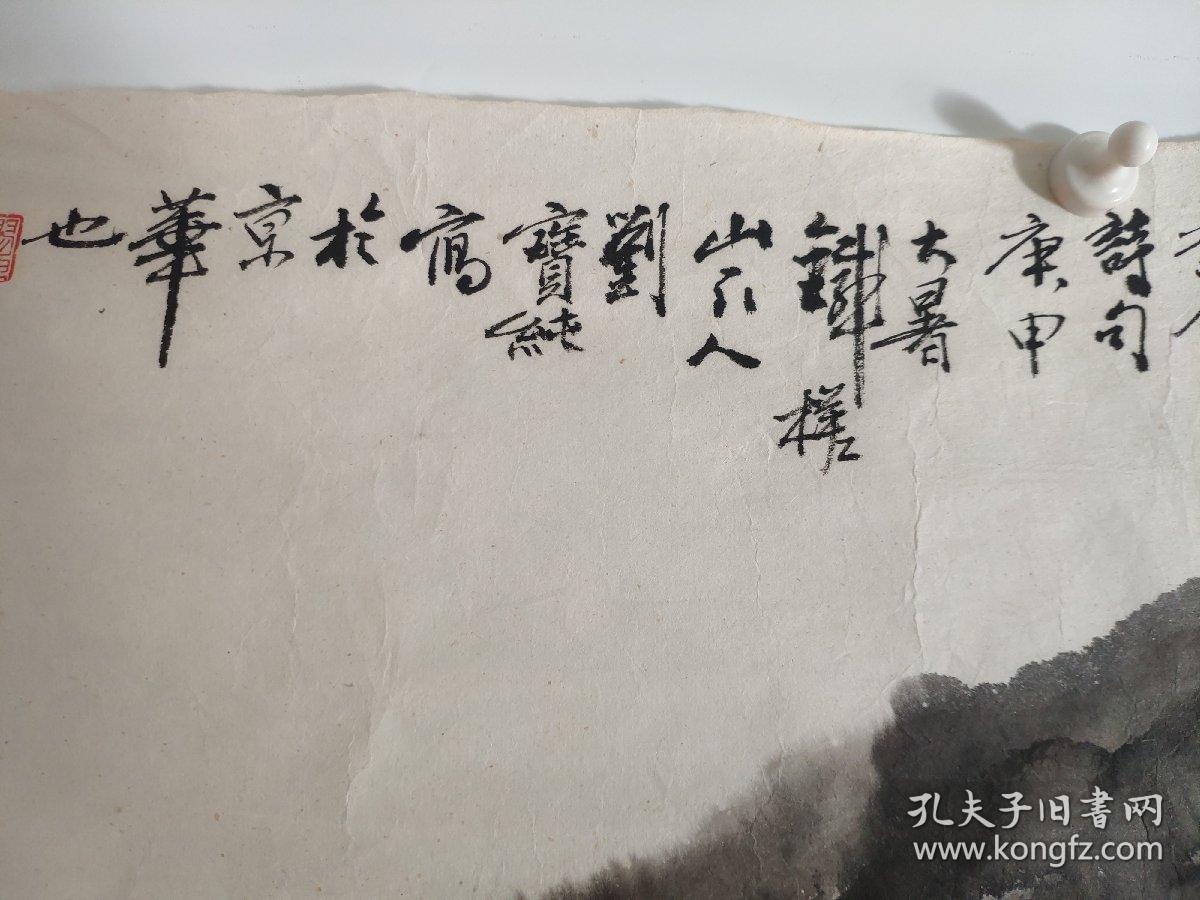 詩句
庚申
大暑
鐵樵
山人
劉
寶純
寫
於
京
華
也
孔夫子旧書网
www.kongfz.com